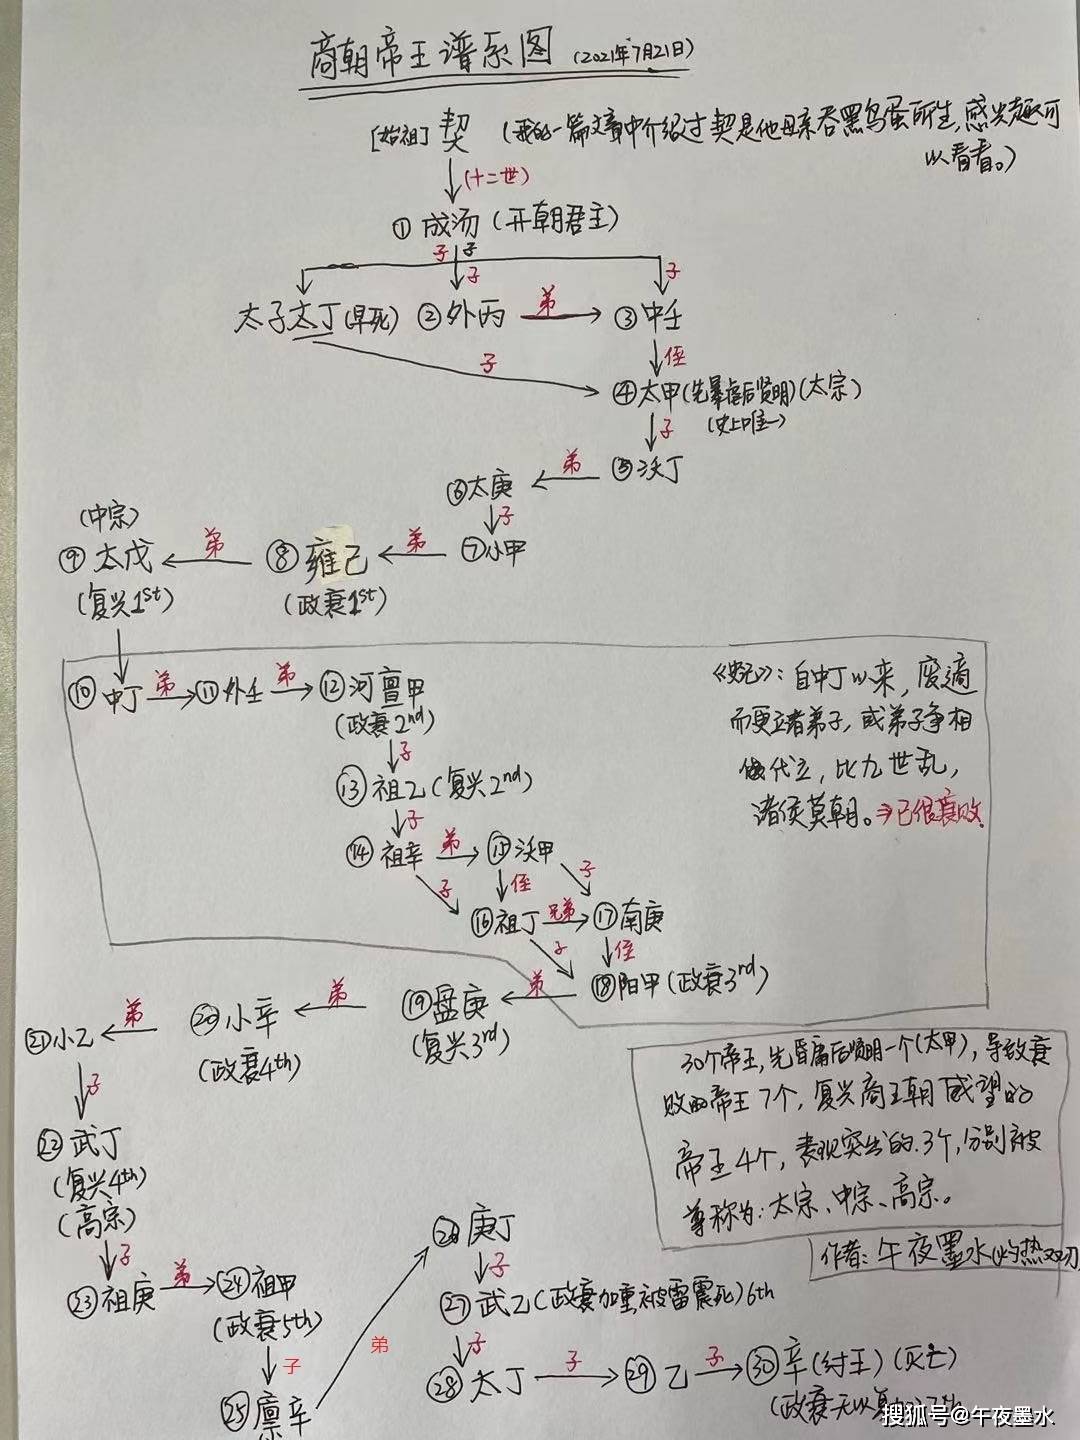 商朝帝王谱系图 (2021年7月21日)
[始祖] 契 (我的一篇文章中介绍过契是他母亲吞黑鸟蛋所生,感兴趣可
以看看。)
(十二世)
① 成汤 (开朝君主)
子 子
子 子
太子太丁(早死) ②外丙 弟 ③中壬
子 侄
④太甲(先暴虐后贤明)(太宗)
(史上唯一)
子
⑥太庚 弟 ⑤沃丁
子
(中宗)
⑨太戊 弟 ⑧雍己 弟 ⑦小甲
(复兴1st) (政衰1st)
⑩中丁 弟 ⑪外壬 弟 ⑫河亶甲
(政衰2nd)
子
⑬祖乙(复兴2nd)
子
⑭祖辛 弟 ⑮沃甲
子 侄 子
⑯祖丁 兄弟 ⑰南庚
子 侄
《史记》:自中丁以来,废適
而更立诸弟子,或弟子争相
代立,比九世乱,
诸侯莫朝。⇒已很衰败
㉑小乙 弟 ⑳小辛 弟 ⑲盘庚 弟 ⑱阳甲(政衰3rd)
(政衰4th) (复兴3rd)
子
㉒武丁
(复兴4th)
(高宗)
子
㉓祖庚 弟 ㉔祖甲
(政衰5th)
子
㉕廪辛
弟
㉖庚丁
子
㉗武乙(政衰加重,被雷震死)6th
子
㉘太丁 子 ㉙乙 子 ㉚辛(纣王)(灭亡)
30个帝王,先昏庸后贤明一个(太甲),导致衰
败的帝王7个,复兴商王朝威望的
帝王4个,表现突出的3个,分别被
尊称为:太宗、中宗、高宗。
作者:午夜墨水(灼热双刃
搜狐号@午夜墨水